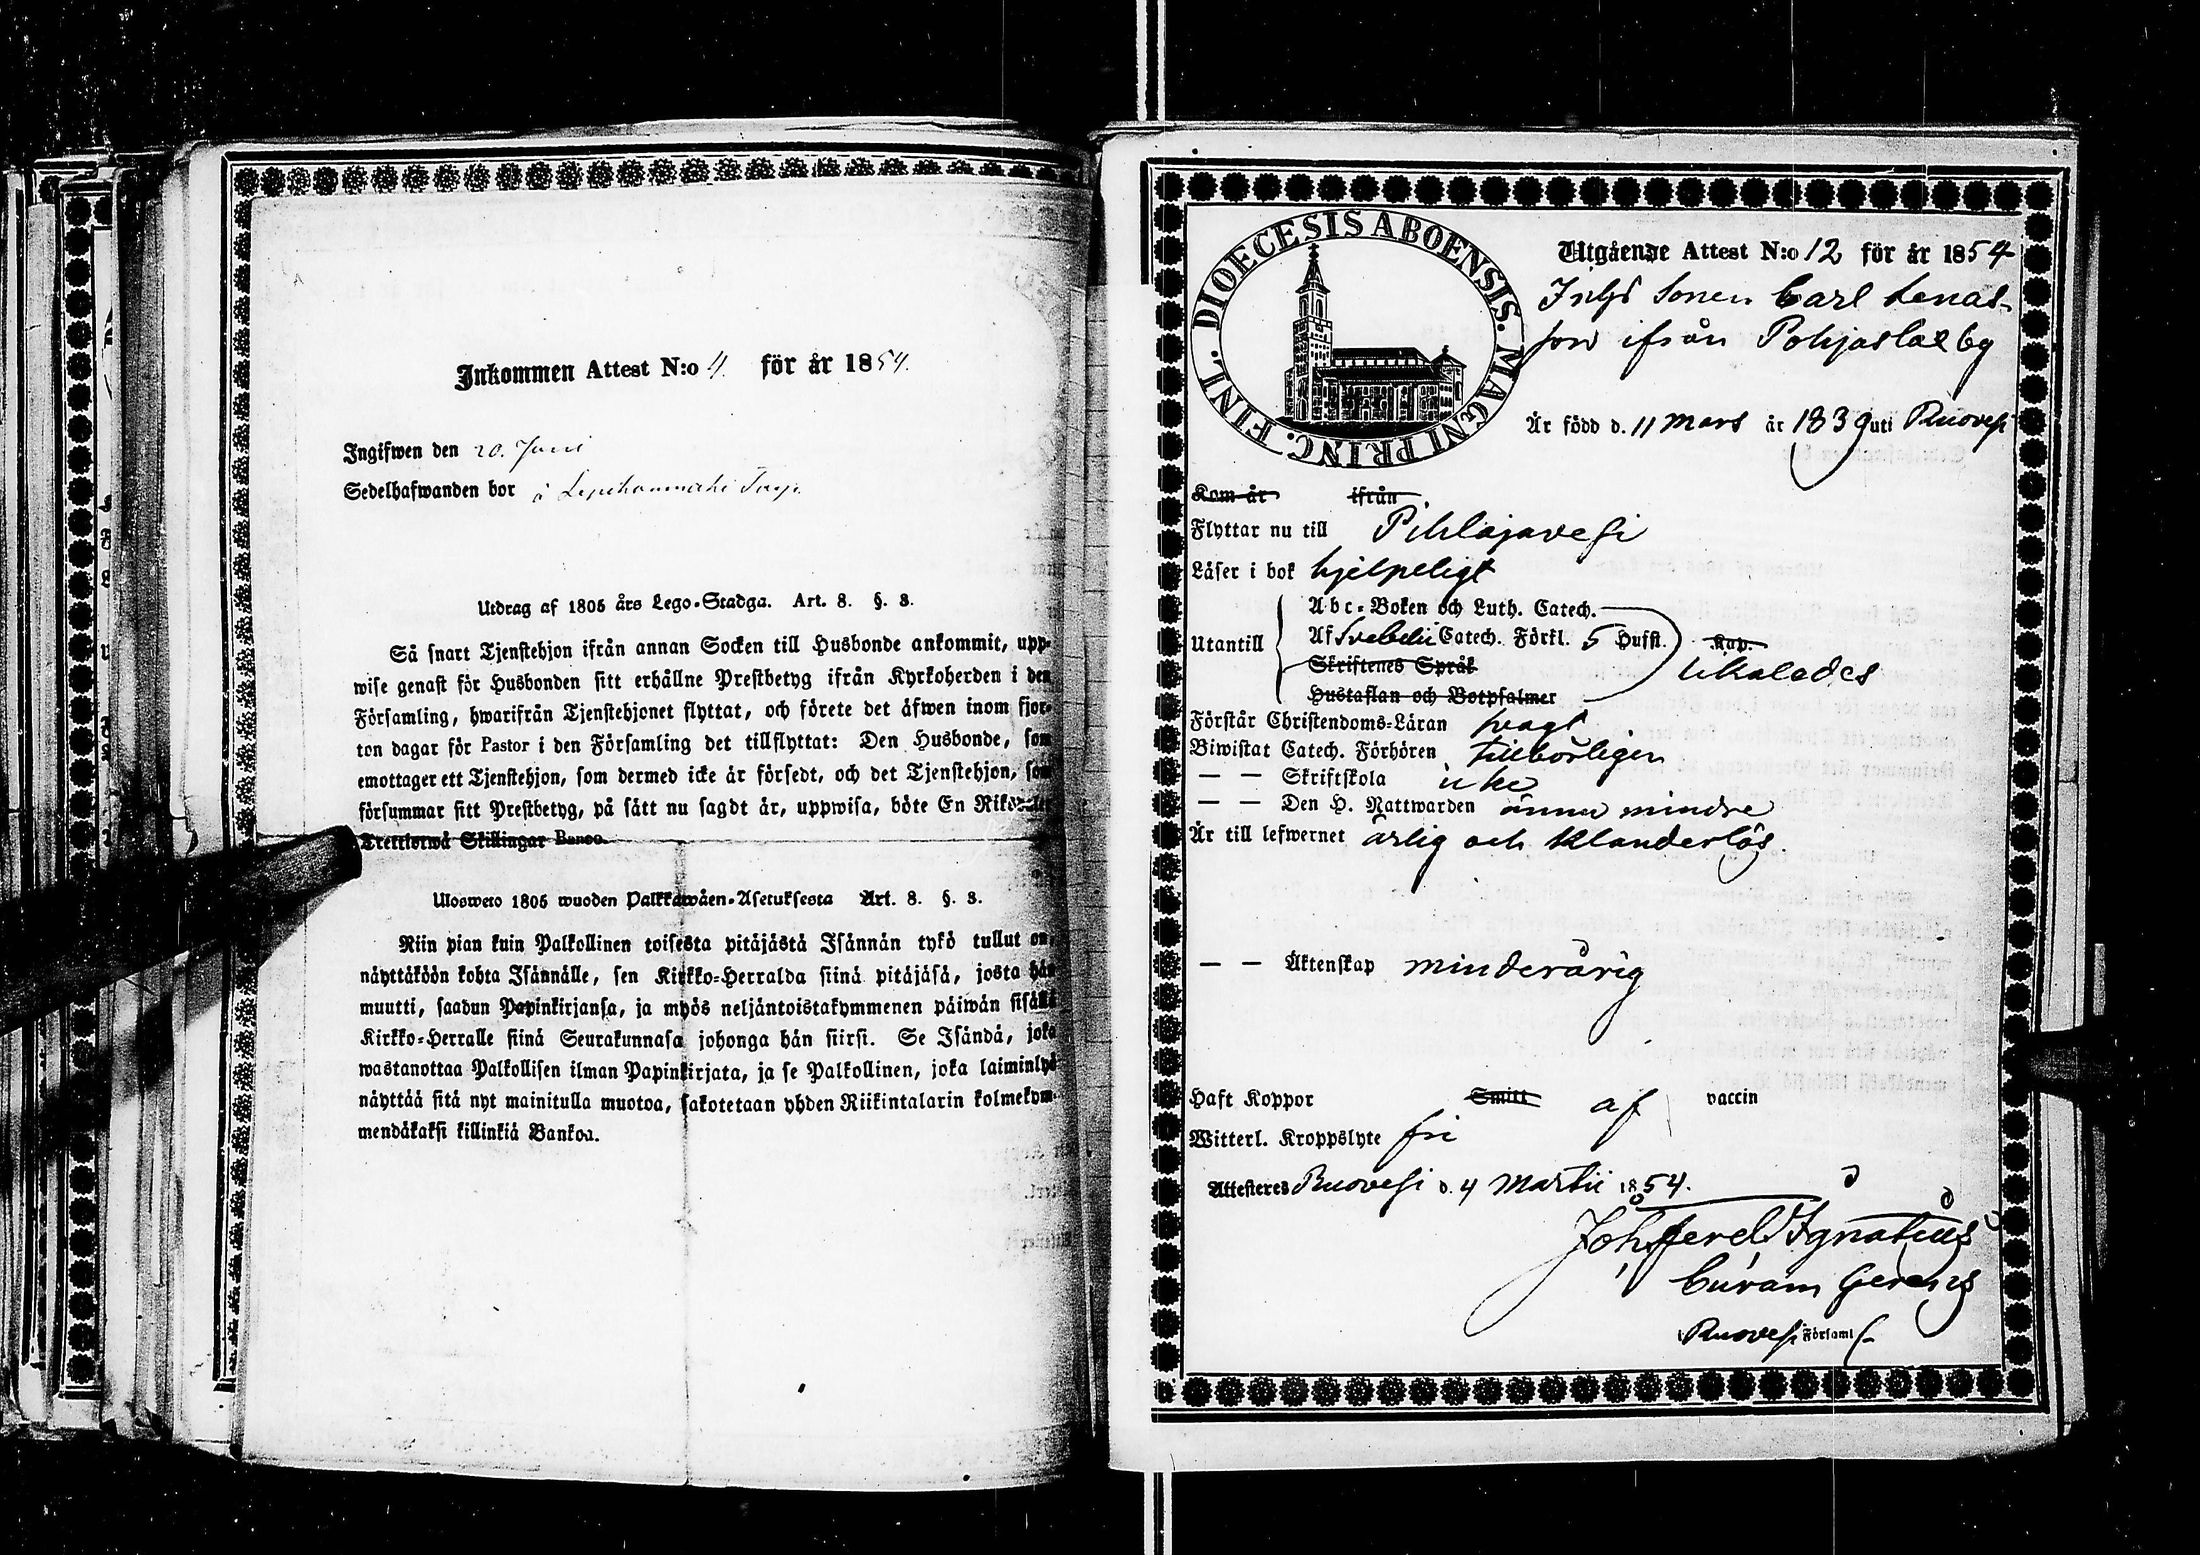 Inkommen Attest N:o 4 för år 1854.
Ingifwen den 20. Juni
Sedelhafwanden bor å
Utdrag af 1805 års Lego-Stadga. Art. 8. §. 3.
Så snart Tjenstehjon ifrån annan Socken till Husbonde ankommit, upp-
wise genast för Husbonden sitt erhållne Prestbetyg ifrån Kyrkoherden i den
Församling, hwarifrån Tjenstehjonet flyttat, och förete det äfwen inom fjor-
ton dagar för Pastor i den Församling det tillflyttat: Den Husbonde, som
emottager ett Tjenstehjon, som dermed icke är försedt, och det Tjenstehjon, som
försummar sitt Prestbetyg, på sätt nu sagdt är, uppwisa, böte En Riksdaler
Trettiotwå Skillingar Banco.
Ulosweto 1805 wuoden Palkkawäen-Asetuksesta Art. 8. §. 3.
Niin pian kuin Palkollinen toisesta pitäjästä Isännän tykö tullut on,
näyttäköön kohta Isännälle, sen Kirkko-Herralda siinä pitäjäsä, josta hän
muutti, saadun Papinkirjansa, ja myös neljäntoistakymmenen päiwän sisällä
Kirkko-Herralle siinä Seurakunnasa johonga hän siirsi. Se Isändä, joka
wastanottaa Palkollisen ilman Papinkirjata, ja se Palkollinen, joka laiminlyö
näyttää sitä nyt mainitulla muotoa, sakotetaan yhden Riikintalarin kolmekym-
mendäkaksi killinkiä Bankoa.
DIOECESIS ABOENSIS. MAGNI PRINC. FINL.
Utgående Attest N:o 12 för år 1854
Sonen Carl Lenas-
son ifrån Pohjaslax by
Är född d. 11 Mars år 1839 uti Ruovesi
Kom år ifrån
Flyttar nu till Pihlajavesi
Läser i bok hjelpeligt
Utantill
Abc-Boken och Luth. Catech.
Af Svebelii Catech. Förkl. 5 Hufst. Kap.
Skriftenes Språk
Hustaflan och Botpsalmer
likaledes
Förstår Christendoms-Läran svagt
Biwistat Catech. Förhören tillbörligen
— — Skriftskola icke
— — Den H. Nattwarden ännu mindre
Är till lefwernet ärlig och klanderlös.
— — Äktenskap minderårig
Haft Koppor Smitt af vaccin
Witterl. Kroppslyte fri
Attesteres Ruovesi d. 4 Martii 1854.
Joh Ferd Ignatius
Curam Gerens
i Ruovesi Församl